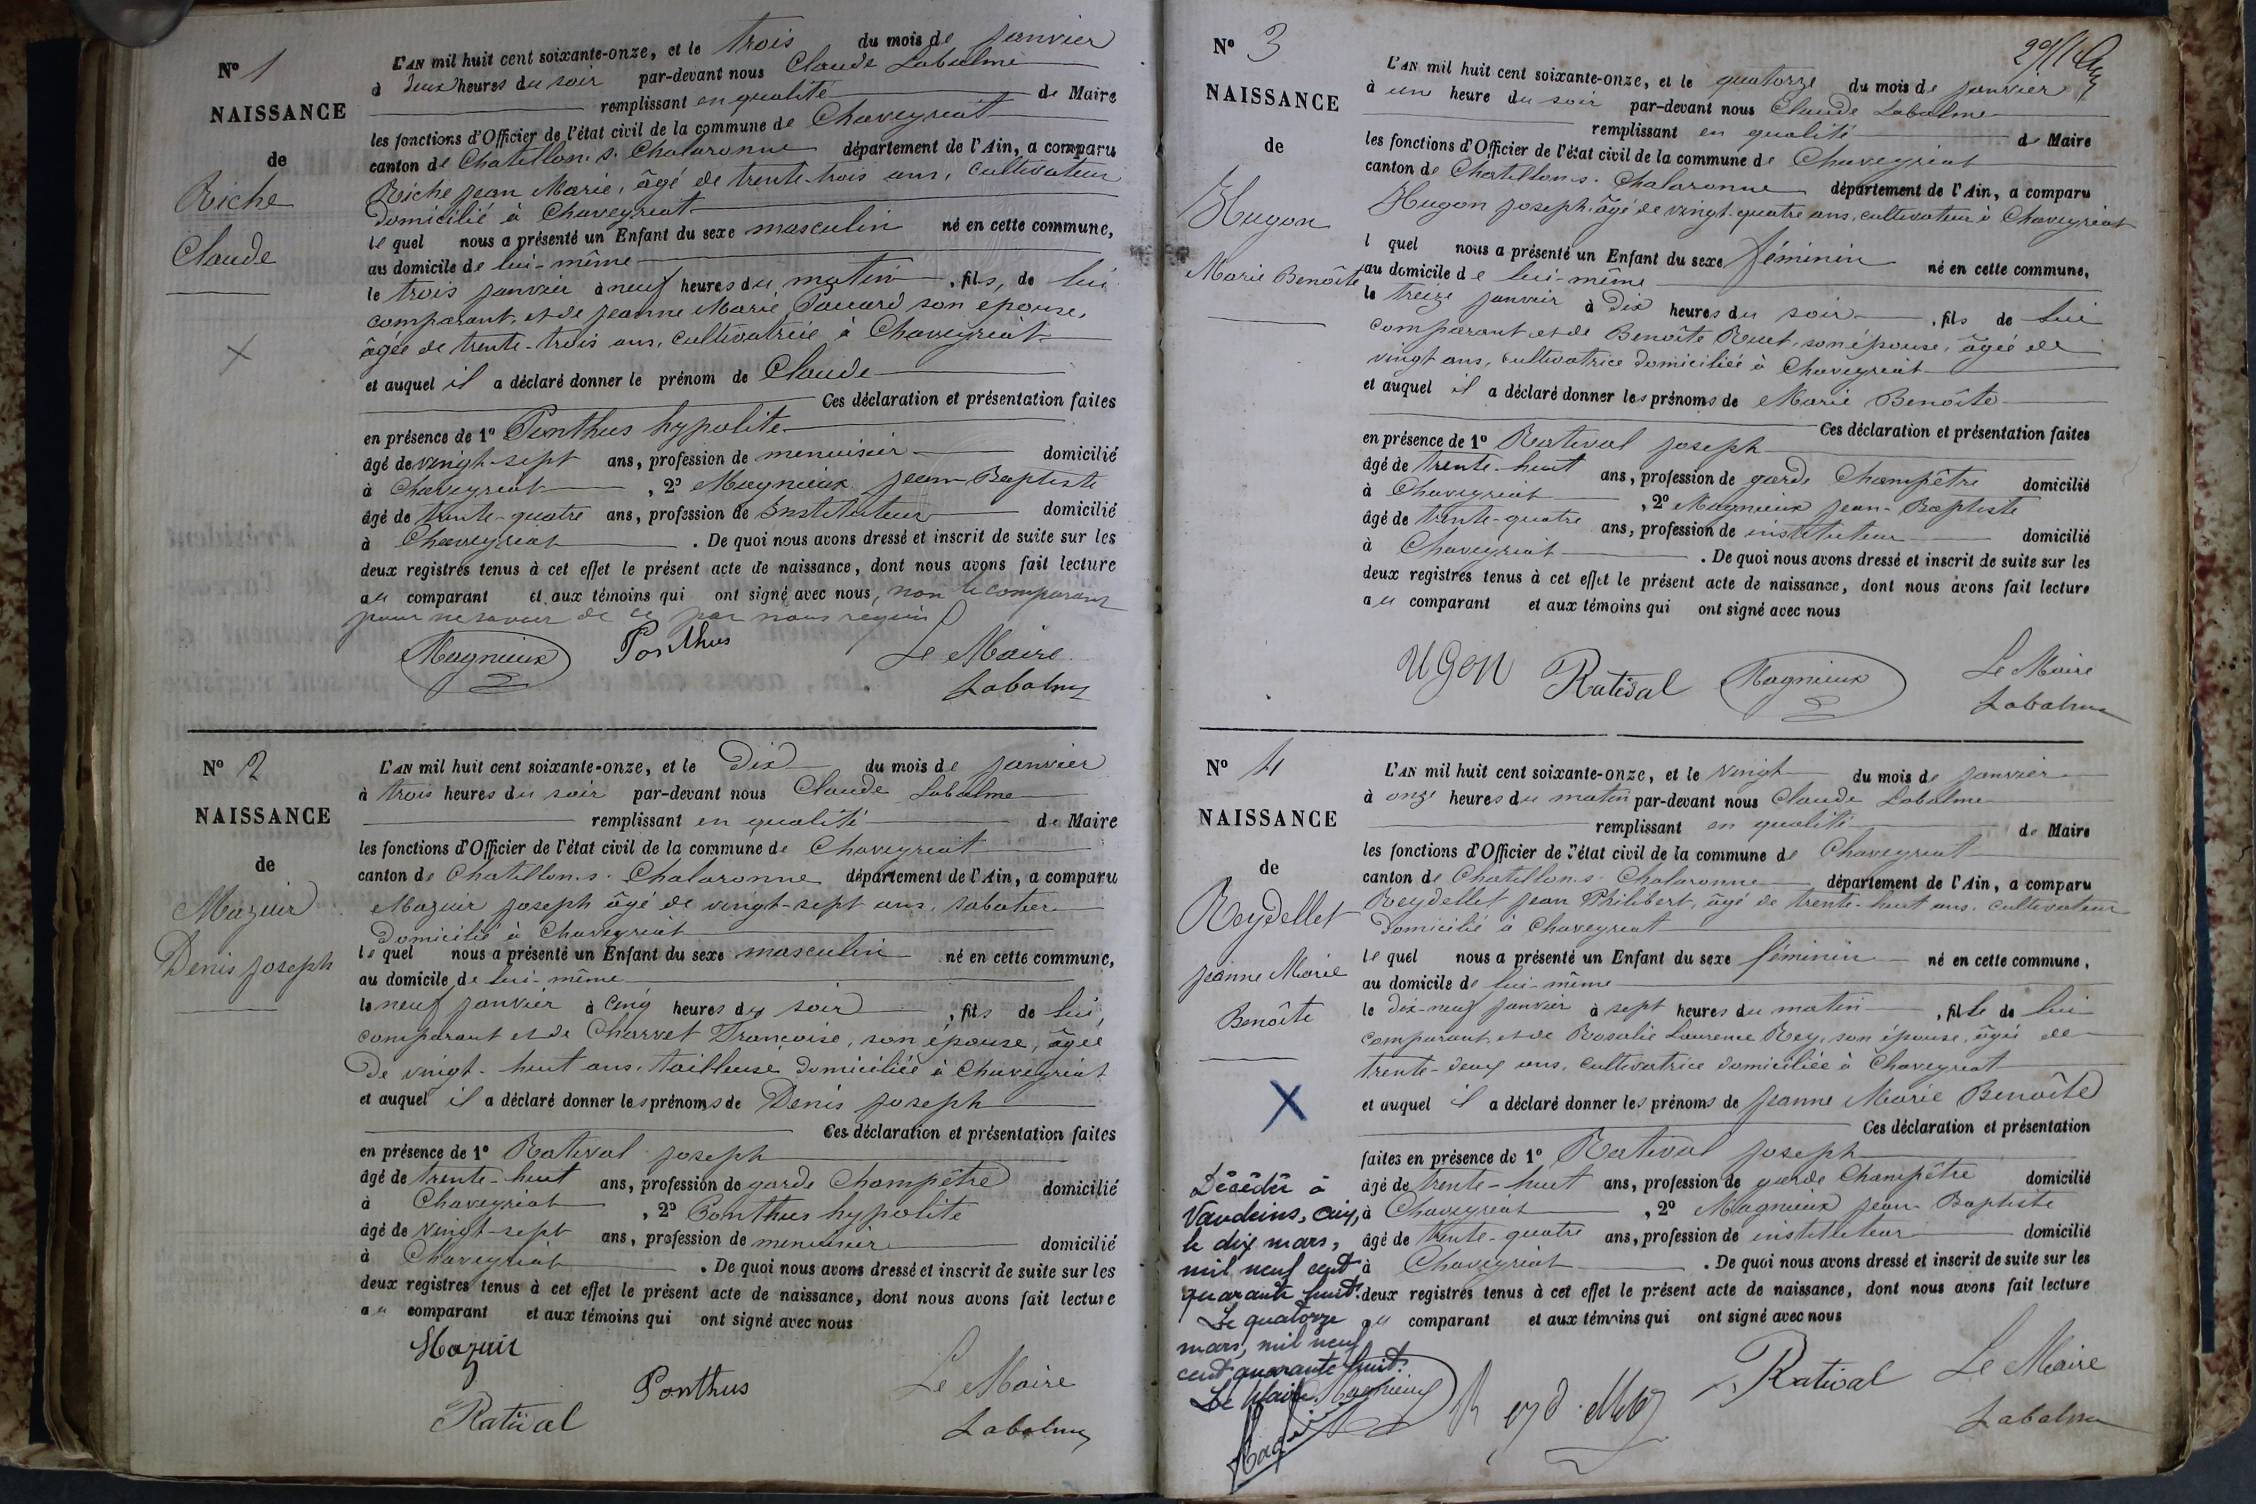 N° 1
NAISSANCE
de
Riche
Claude
L'AN mil huit cent soixante-onze, et le trois du mois de janvier
à deux heures du soir par-devant nous Claude Labalme
remplissant en qualité de Maire
les fonctions d'Officier de l'état civil de la commune de Chaveyriat
canton de Chatillon s. Chalaronne département de l'Ain, a comparu
Riche Jean Marie, âgé de trente-trois ans, cultivateur
domicilié à Chaveyriat
lequel nous a présenté un Enfant du sexe masculin né en cette commune,
au domicile de lui-même
le trois janvier à neuf heures du matin, fils, de lui
comparant, et de Jeanne Marie son épouse,
âgée de trente-trois ans, cultivatrice à Chaveyriat
et auquel il a déclaré donner le prénom de Claude
Ces déclaration et présentation faites
en présence de 1° Ponthus hypolite
âgé de vingt-sept ans, profession de menuisier domicilié
à Chaveyriat, 2° Magnieux Jean-Baptiste
âgé de trente-quatre ans, profession de Instituteur domicilié
à Chaveyriat. De quoi nous avons dressé et inscrit de suite sur les
deux registres tenus à cet effet le présent acte de naissance, dont nous avons fait lecture
au comparant et aux témoins qui ont signé avec nous, non le comparant
pour ne savoir de ce par nous requis
Magnieux Ponthus Le Maire
Labalme
N° 2
NAISSANCE
de
Mazuir
Denis Joseph
L'AN mil huit cent soixante-onze, et le Dix du mois de janvier
à trois heures du soir par-devant nous Claude Labalme
remplissant en qualité de Maire
les fonctions d'Officier de l'état civil de la commune de Chaveyriat
canton de Chatillon s. Chalaronne département de l'Ain, a comparu
Mazuir Joseph âgé de vingt-sept ans, sabotier
domicilié à Chaveyriat
lequel nous a présenté un Enfant du sexe masculin né en cette commune,
au domicile de lui-même
le neuf janvier à cinq heures du soir, fils de lui,
comparant et de Charvet Françoise, son épouse, âgée
de vingt-huit ans, tailleuse domiciliée à Chaveyriat
et auquel il a déclaré donner les prénoms de Denis Joseph
Ces déclaration et présentation faites
en présence de 1° Rativat Joseph
âgé de trente-huit ans, profession de garde Champêtre domicilié
à Chaveyriat, 2° Ponthus hypolite
âgé de vingt-sept ans, profession de menuisier domicilié
à Chaveyriat. De quoi nous avons dressé et inscrit de suite sur les
deux registres tenus à cet effet le présent acte de naissance, dont nous avons fait lecture
au comparant et aux témoins qui ont signé avec nous
Mazuir
Ponthus Le Maire
Rativat Labalme
N° 3
NAISSANCE
de
Hugon
Marie Benoîte
L'AN mil huit cent soixante-onze, et le quatorze du mois de janvier
à une heure du soir par-devant nous Claude Labalme
remplissant en qualité de Maire
les fonctions d'Officier de l'état civil de la commune de Chaveyriat
canton de Chatillon s. Chalaronne département de l'Ain, a comparu
Hugon Joseph, âgé de vingt-quatre ans, cultivateur à Chaveyriat
l quel nous a présenté un Enfant du sexe féminin né en cette commune,
au domicile de lui-même
le treize janvier à dix heures du soir, fils de lui
comparant et de Benoîte son épouse, âgée de
vingt ans, cultivatrice domiciliée à Chaveyriat
et auquel il a déclaré donner les prénoms de Marie Benoîte
Ces déclaration et présentation faites
en présence de 1° Rativat Joseph
âgé de trente-huit ans, profession de garde Champêtre domicilié
à Chaveyriat, 2° Magnieux Jean-Baptiste
âgé de trente-quatre ans, profession de instituteur domicilié
à Chaveyriat. De quoi nous avons dressé et inscrit de suite sur les
deux registres tenus à cet effet le présent acte de naissance, dont nous avons fait lecture
au comparant et aux témoins qui ont signé avec nous
UGON Rativat Magnieux Le Maire
Labalme
N° 4
NAISSANCE
de
Reydellet
Jeanne Marie
Benoîte
L'AN mil huit cent soixante-onze, et le vingt du mois de janvier
à onze heures du matin par-devant nous Claude Labalme
remplissant en qualité de Maire
les fonctions d'Officier de l'état civil de la commune de Chaveyriat
canton de Chatillon s. Chalaronne département de l'Ain, a comparu
Reydellet Jean Philibert, âgé de trente-huit ans, cultivateur
domicilié à Chaveyriat
lequel nous a présenté un Enfant du sexe féminin né en cette commune,
au domicile de lui-même
le dix-neuf janvier à sept heures du matin, fille de lui
comparant et de Rosalie Laurence Rey, son épouse, âgée de
trente-deux ans, cultivatrice domiciliée à Chaveyriat
et auquel il a déclaré donner les prénoms de Jeanne Marie Benoîte
Ces déclaration et présentation
faites en présence de 1° Rativat Joseph
âgé de trente-huit ans, profession de garde Champêtre domicilié
à Chaveyriat, 2° Magnieux Jean-Baptiste
âgé de trente-quatre ans, profession de instituteur domicilié
à Chaveyriat. De quoi nous avons dressé et inscrit de suite sur les
deux registres tenus à cet effet le présent acte de naissance, dont nous avons fait lecture
au comparant et aux témoins qui ont signé avec nous
Reydellet Rativat Le Maire
Labalme
Décédée à
Vandeins, Ain,
le dix mars,
mil neuf cent
quarante huit.
Le quatorze
mars, mil neuf
cent quarante huit.
Le Maire